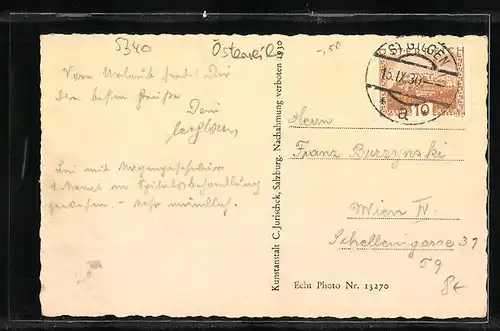 5340
Österreich
-,50
Vom Urlaub sendet Dir
die besten Grüße
Dein
und mit Magengeschwür
1 Monat in Spitalsbehandlung
gewesen. -
Kunstanstalt C. Jurischek, Salzburg. Nachahmung verboten 1930
ST. GILGEN
15.IX.30
a
10
Herrn
Franz Burzynski
Wien IV.
Schelleingasse 37
T 9
8€
Echt Photo Nr. 13270